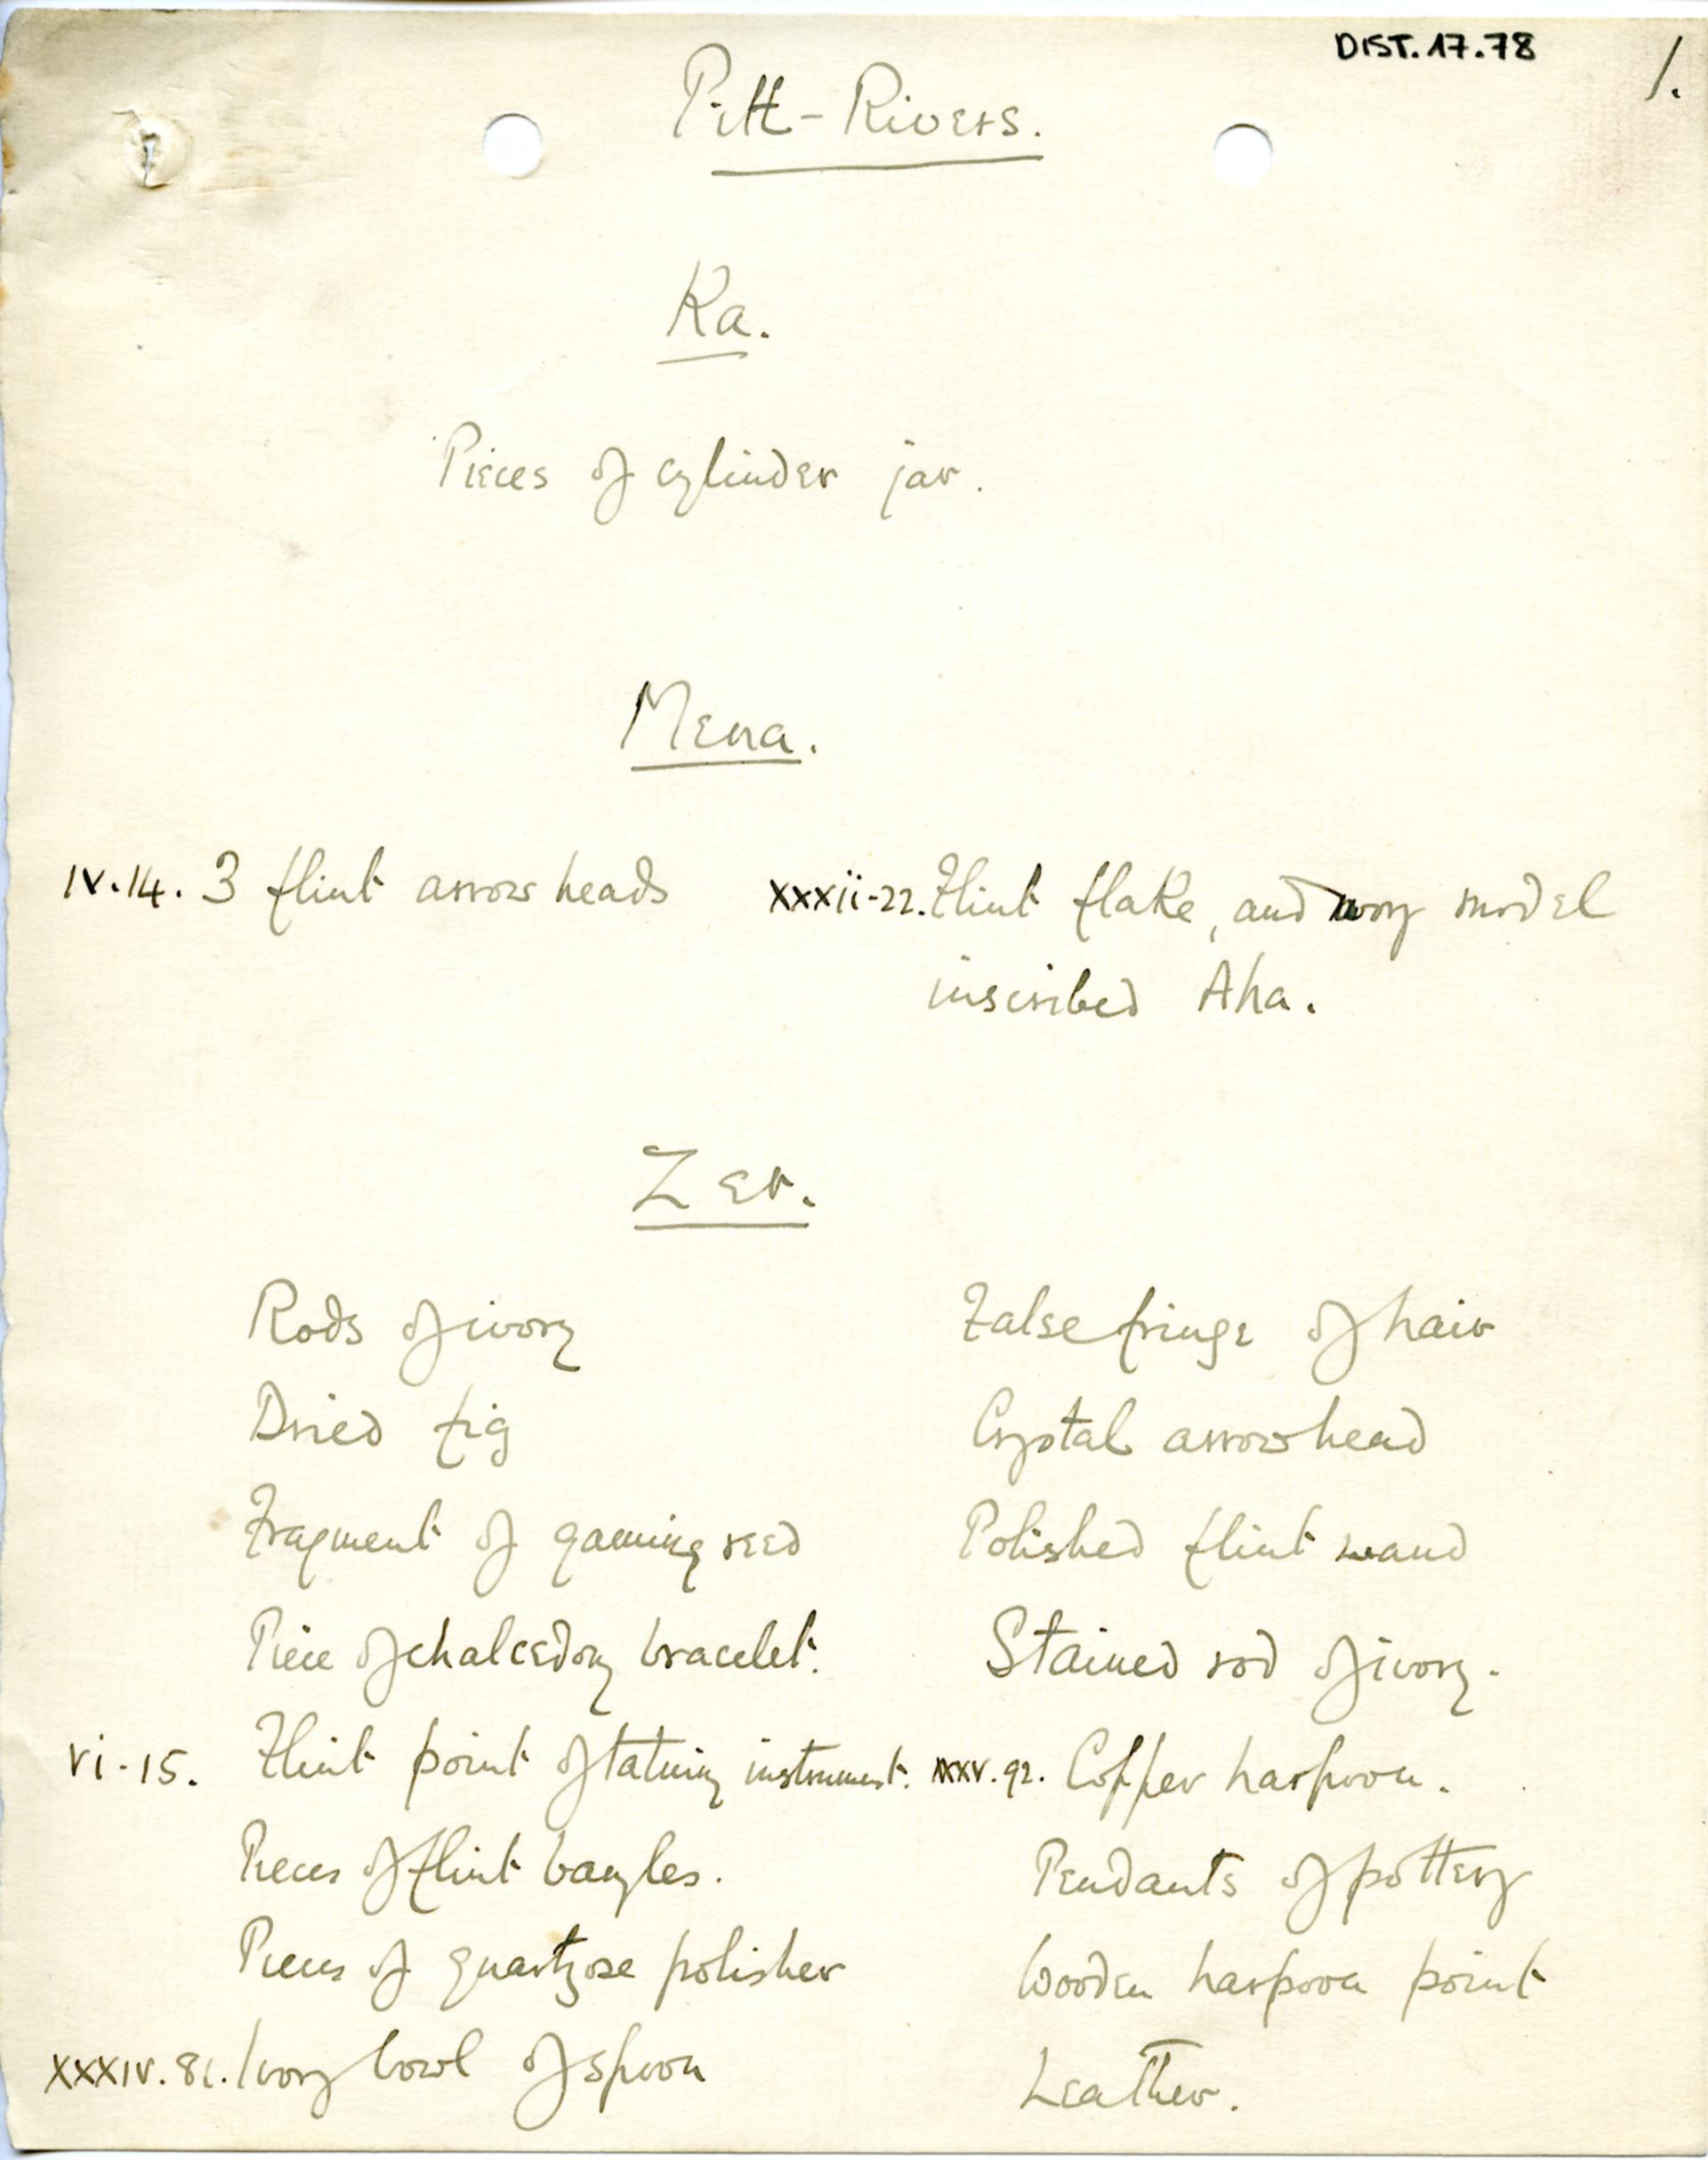 DIST. 17.78
1.
Pitt-Rivers.
Ka.
Pieces of cylinder jar.
Mena.
IV.14. 3 flint arrow heads
xxxii-22. Flint flake, and ivory model
inscribed Aha.
Zer.
Rods of ivory
False fringe of hair
Dried fig
Crystal arrowhead
Fragment of gaming reed
Polished flint wand
Piece of chalcedony bracelet.
Stained rod of ivory.
vi-15. Flint point of tatuing instrument.
xxxv.92. Copper harpoon.
Pieces of flint bangles.
Pendants of pottery
Pieces of quartzose polisher
Wooden harpoon point
XXXIV. 81. Ivory bowl of spoon
Leather.